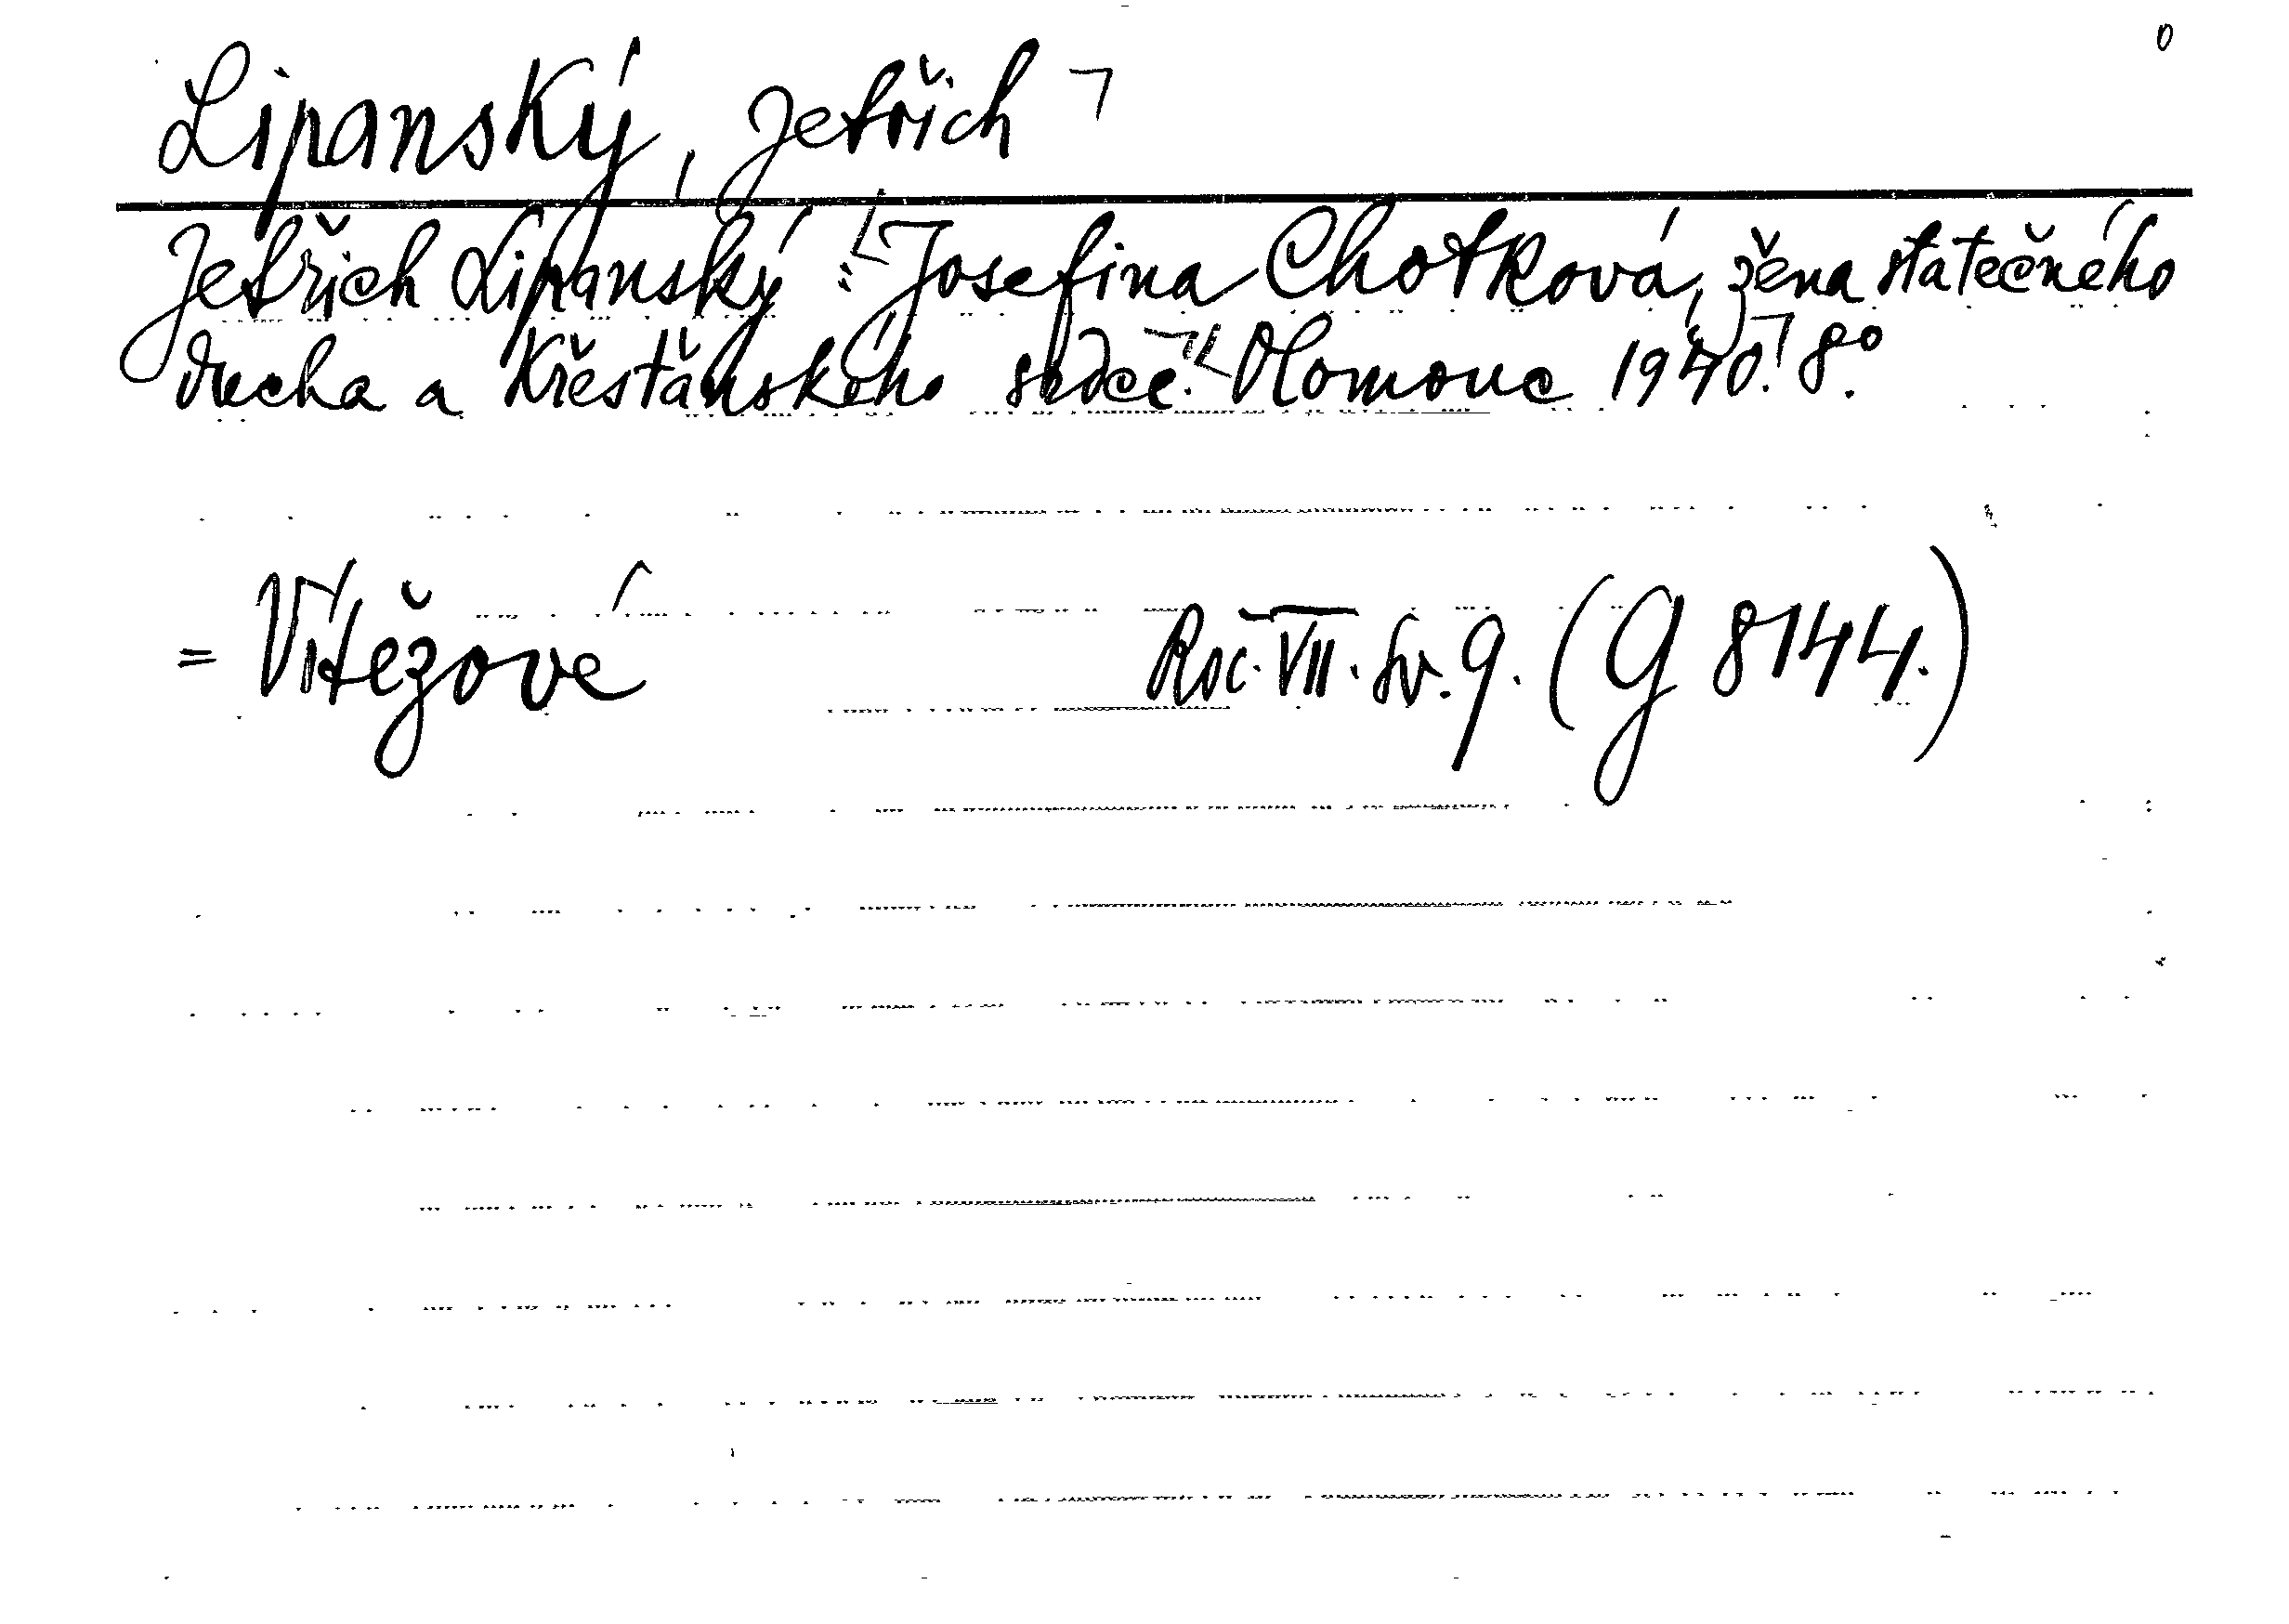 0
Lipanský, Jetřich
Jetřich Lipanský: Josefina Chotková, žena statečného
ducha a křesťanského srdce. Olomouc 1940. 8°.
= Vítězové Roč. VII. sv. 9. (G 8144.)